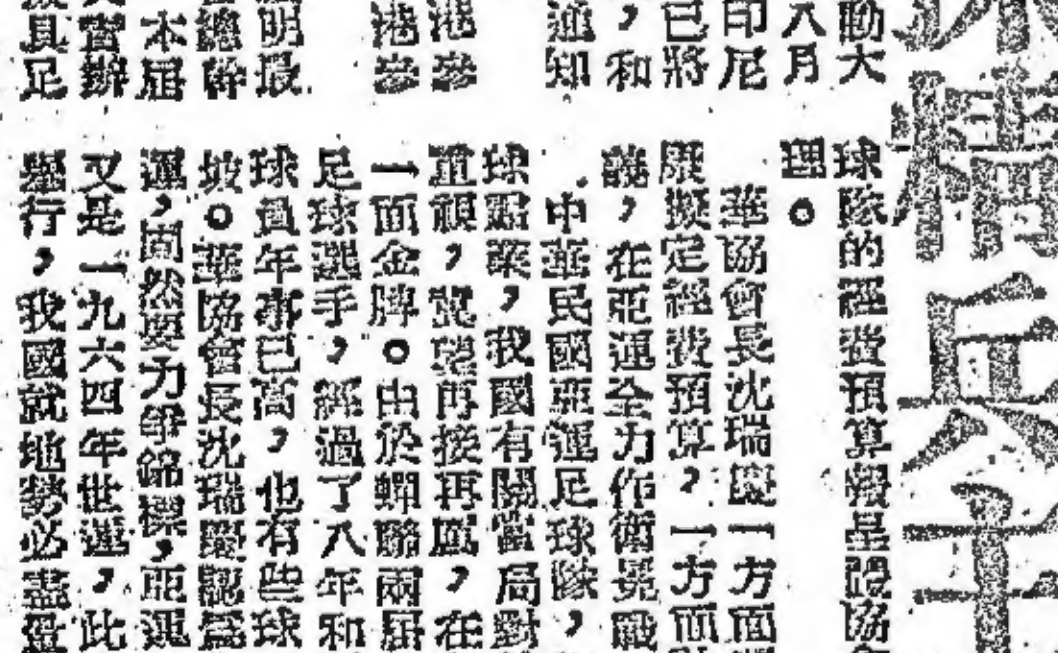 勤大
八月
印尼
已將
，和
通知
港參
港參
明最
總幹
本屆
辦
具足
球隊的經費預算報呈體協
理。
華協會長沈瑞慶一方面
擬定經費預算，一方面
，在亞運全力作衛冕戰
中華民國亞運足球隊，
球，我國有關當局對
重視，冀望再接再厲，在
一面金牌。由於蟬聯兩屆
足球選手，經過了八年和
球員年事已高，也有些球
坡。華協會長沈瑞慶認為
運，固然要力爭錦標，亞運
又是一九六四年世運，此
舉行，我國就地勢必盡量